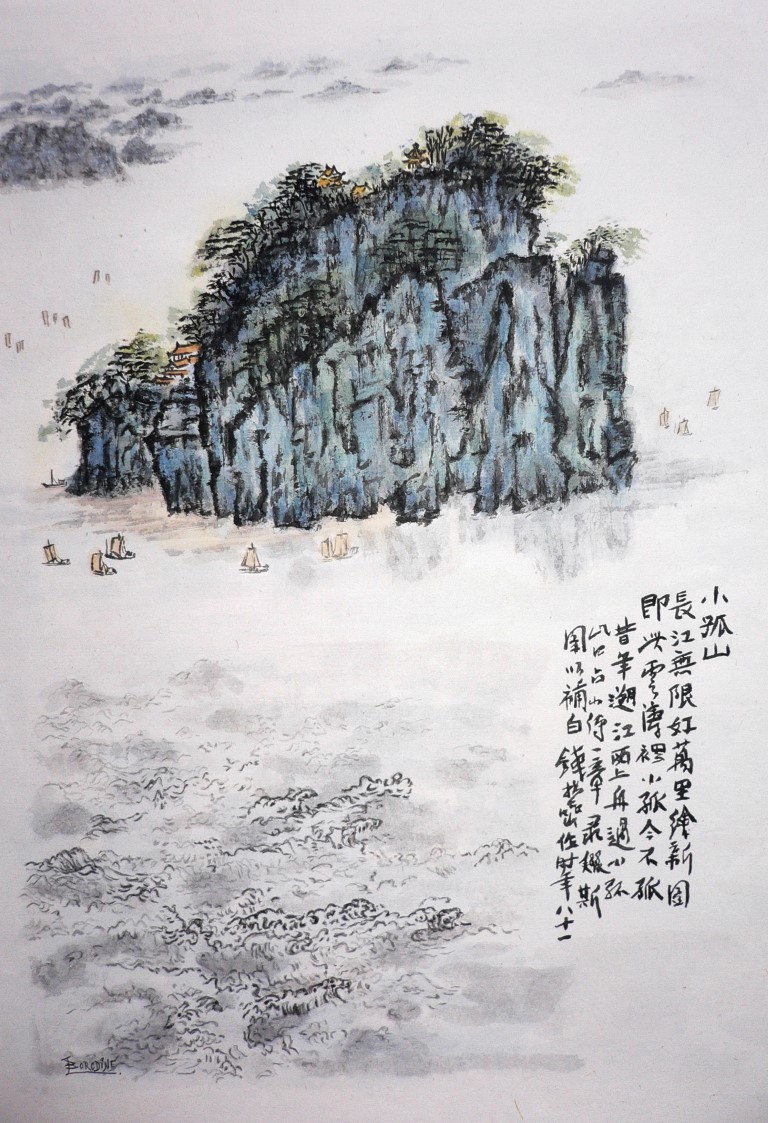 小孤山
長江無限好萬里繪新圖
即此雲濤裡小孤今不孤
昔年遡江西上舟過小孤
山口占小詩一章录綴斯
圖以補白 錢松嵒作時年八十一
BORODINE